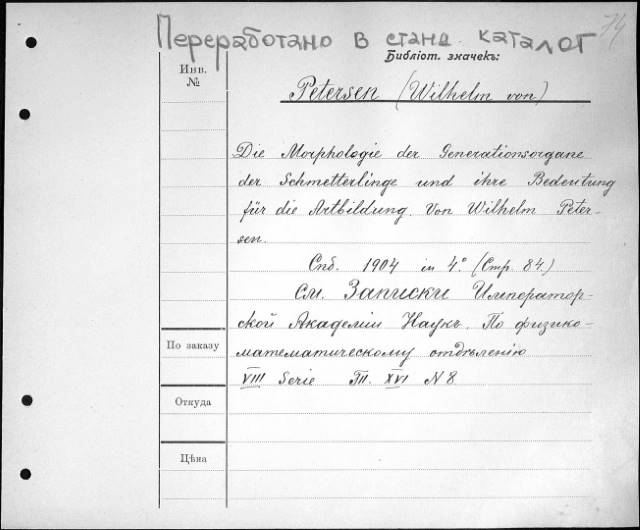 Переработано в станд. каталог
74
Библіот. значекъ:
Инв. №
Petersen (Wilhelm von)
Die Morphologie der Generationsorgane
der Schmetterlinge und ihre Bedeutung
für die Artbildung. Von Wilhelm Peter-
sen.
Спб. 1904 in 4° (Стр. 84.)
См. Записки Император-
ской Академіи Наукъ. По физико-
математическому отдѣленію
VIII Serie Т. XVI N 8
По заказу
Откуда
Цѣна